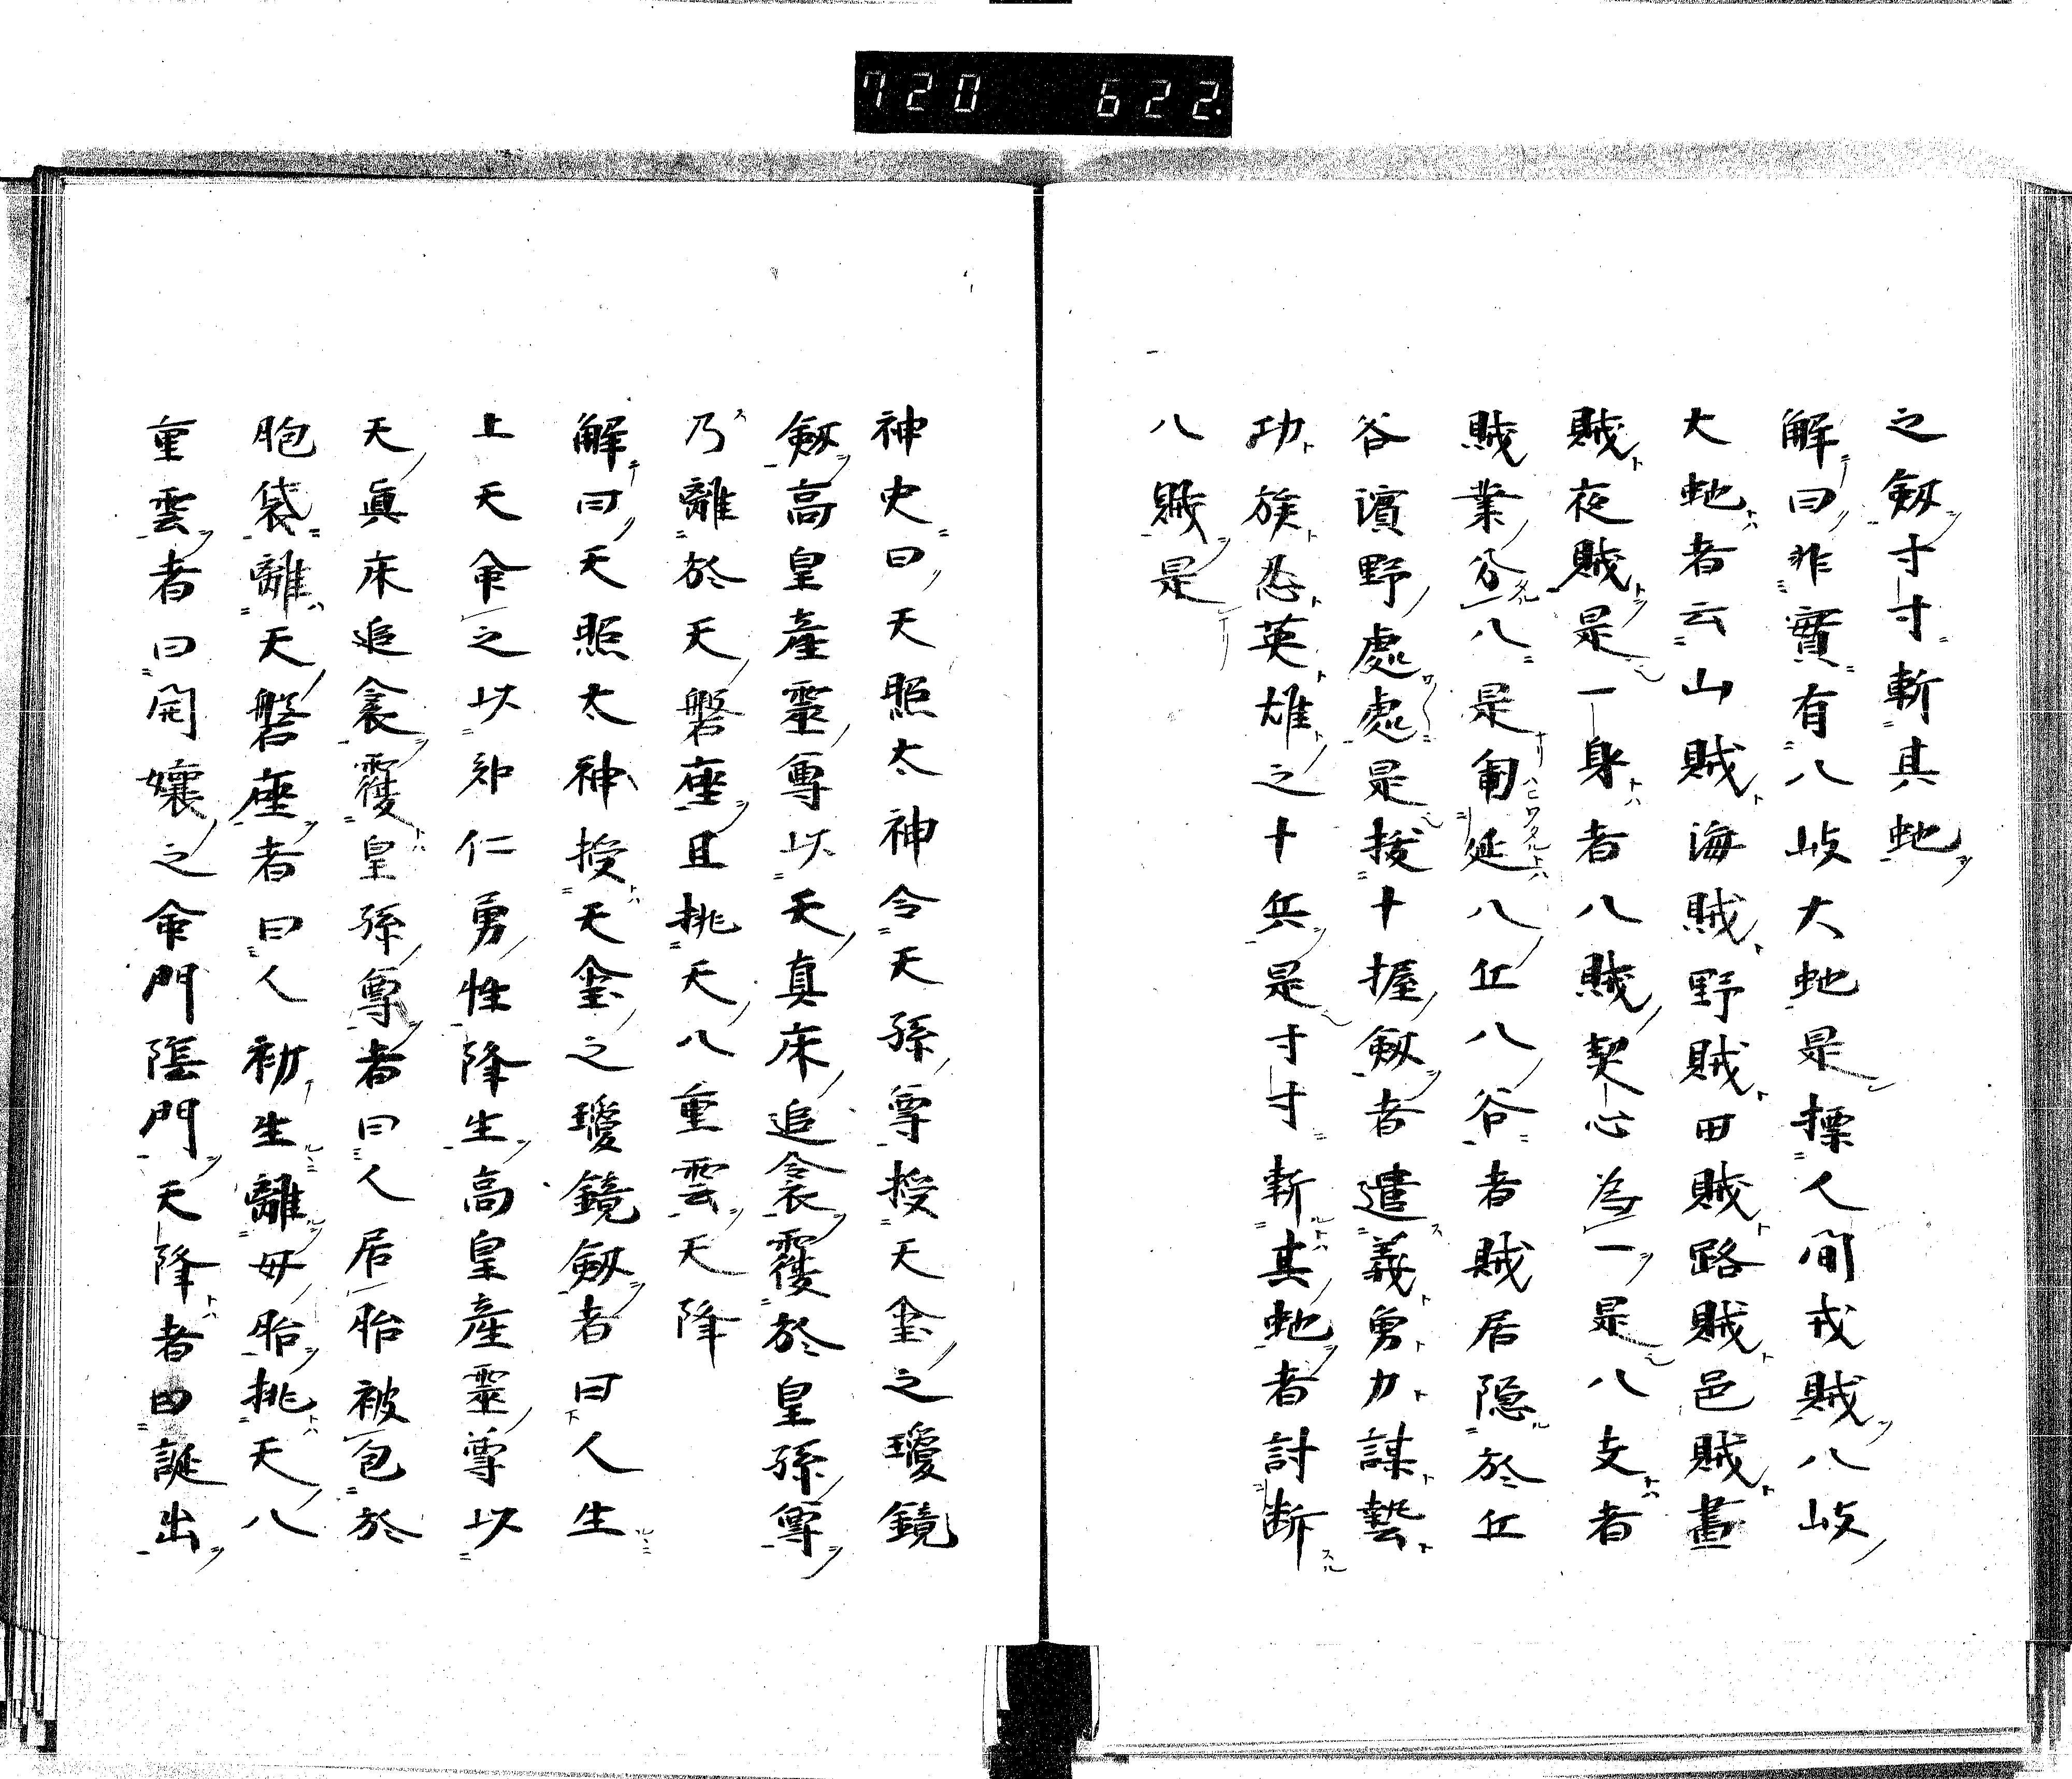 720 622.
之劔寸寸斬其虵
解曰非實有八岐大虵是摽人間戎賊八岐
大虵者云山賊海賊野賊田賊路賊邑賊晝
賊夜賊是一身者八賊契心為一是八支者
賊業分八是匍延八丘八谷者賊居隠於丘
谷濱野處處是拔十握劔者遣義勇力謀藝
功族忍英雄之十兵是寸寸斬其虵者討断
八賊是
神史曰天照太神令天孫尊授天璽之瓊鏡
劔高皇產靈尊以天真床追衾覆於皇孫尊
乃離於天磐座且排天八重雲天降
解曰天照太神授天璽之瓊鏡劔者曰人生
上天命之以知仁勇性降生高皇產靈尊以
天真床追衾覆皇孫尊者曰人居胎被包於
胞袋離天磐座者曰人初生離母胎排天八
重雲者曰開孃之命門陰門天降者曰誕出